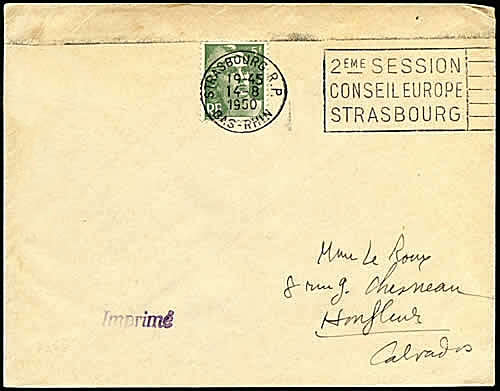 STRASBOURG R.P.
19-45
14-8
1950
BAS-RHIN
2EME SESSION
CONSEIL EUROPE
STRASBOURG
Mme Le Roux
8 rue g. Chesneau
Honfleur
Calvados
Imprimé